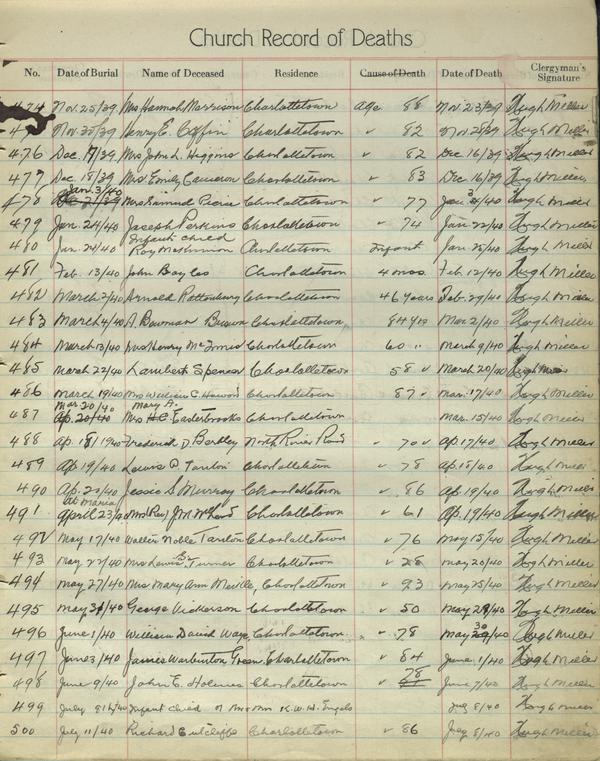 Church Record of Deaths
No. Date of Burial Name of Deceased Residence Cause of Death Date of Death Clergyman's Signature
474 Nov. 25/39 Mrs Hannah Morrison Charlottetown age 88 Nov. 23/39 Hugh Miller
Nov. 30/39 Henry E. Coffin Charlottetown " 82 Hugh Miller
476 Dec. 17/39 Mrs John L. Higgins Charlottetown " 82 Dec 16/39 Hugh Miller
477 Dec. 18/39 Mrs Emily Cameron Charlottetown " 83 Dec 16/39 Hugh Miller
Jan. 3/40
478 Mrs Samuel Charlottetown " 77 Hugh Miller
479 Jan. 24/40 Joseph Perkins Charlottetown " 74 Jan. 22/40 Hugh Miller
Infant child
480 Jan. 24/40 Roy McKinnon Charlottetown Infant Hugh Miller
481 Feb. 13/40 John Bayles Charlottetown 4 mos. Feb. 12/40 Hugh Miller
482 March 2/40 Arnold Rattenbury Charlottetown 46 years Feb. 29/40 Hugh Miller
483 March 4/40 A. Bowman Brown Charlottetown 84 yrs Mar 2/40 Hugh Miller
484 March 13/40 Mrs Henry McInnis Charlottetown 60 " March 9/40 Hugh Miller
485 March 22/40 Lambert Spencer Charlottetown 58 " March 20/40 Hugh Miller
486 March 19/40 Mrs William C. Charlottetown 87 " Mar. 17/40 Hugh Miller
Mar. 20/40 Mary A.
487 Ap. 20/40 Mrs H C Easterbrooks Charlottetown Mar. 18/40 Hugh Miller
488 Ap. 18/1940 Frederick D. Bentley North River Road " 70 " Ap. 17/40 Hugh Miller
489 Ap. 19/40 Lewis P. Tanton Charlottetown " 78 Ap. 18/40 Hugh Miller
490 Ap. 20/40 Jessie S. Murray Charlottetown " 86 Ap. 19/40 Hugh Miller
491 April 23/40 Mrs (Rev) J. M. Charlottetown " 61 Ap. 19/40 Hugh Miller
492 May 17/40 Walter Noble Tanton Charlottetown " 76 May 15/40 Hugh Miller
493 May 22/40 Mrs Lewis Turner Charlottetown " 28 May 20/40 Hugh Miller
494 May 27/40 Mrs Mary Ann Melville, Charlottetown " 93 May 25/40 Hugh Miller
495 May 31/40 George Vickerson Charlottetown " 50 May 29/40 Hugh Miller
496 June 1/40 William David Waye, Charlottetown. " 78 May 30/40 Hugh Miller
497 June 3/40 James Warburton Green. Charlottetown " 84 June 1/40 Hugh Miller
498 June 9/40 John E. Holmes Charlottetown " 78 June 7/40 Hugh Miller
499 July 8th/40 Infant child of Mr & Mrs K. W. H. July 8/40 Hugh Miller
500 July 11/40 Richard Sutcliffe Charlottetown " 86 July 8/40 Hugh Miller